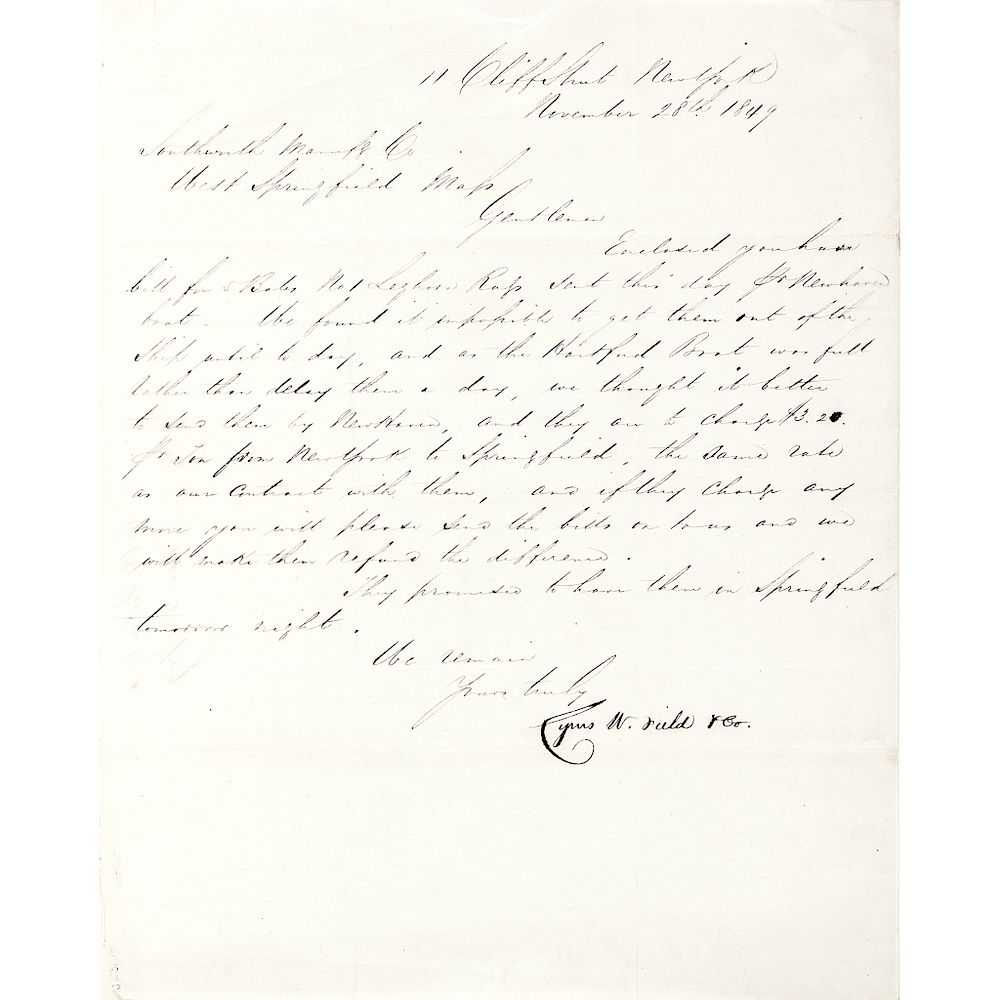 11 Cliff Street New York
November 28th 1849
Southworth Manf Co
West Springfield Mass
Gentlemen
Enclosed you have
bill for Bales No 1 Leghorn Rags sent this day pr New haven
boat. We found it impossible to get them out of the
Ship until to day, and as the Hartford Boat was full
rather than delay them a day, we thought it better
to send them by New Haven, and they are to charge $3.20.
pr Ton from New York to Springfield, the same rate
as our contract with them, and if they charge any
more you will please send the bills on to us and we
will make them refund the difference.
They promised to have them in Springfield
tomorrow night.
We remain
Yours truly
Cyrus W. Field & Co.